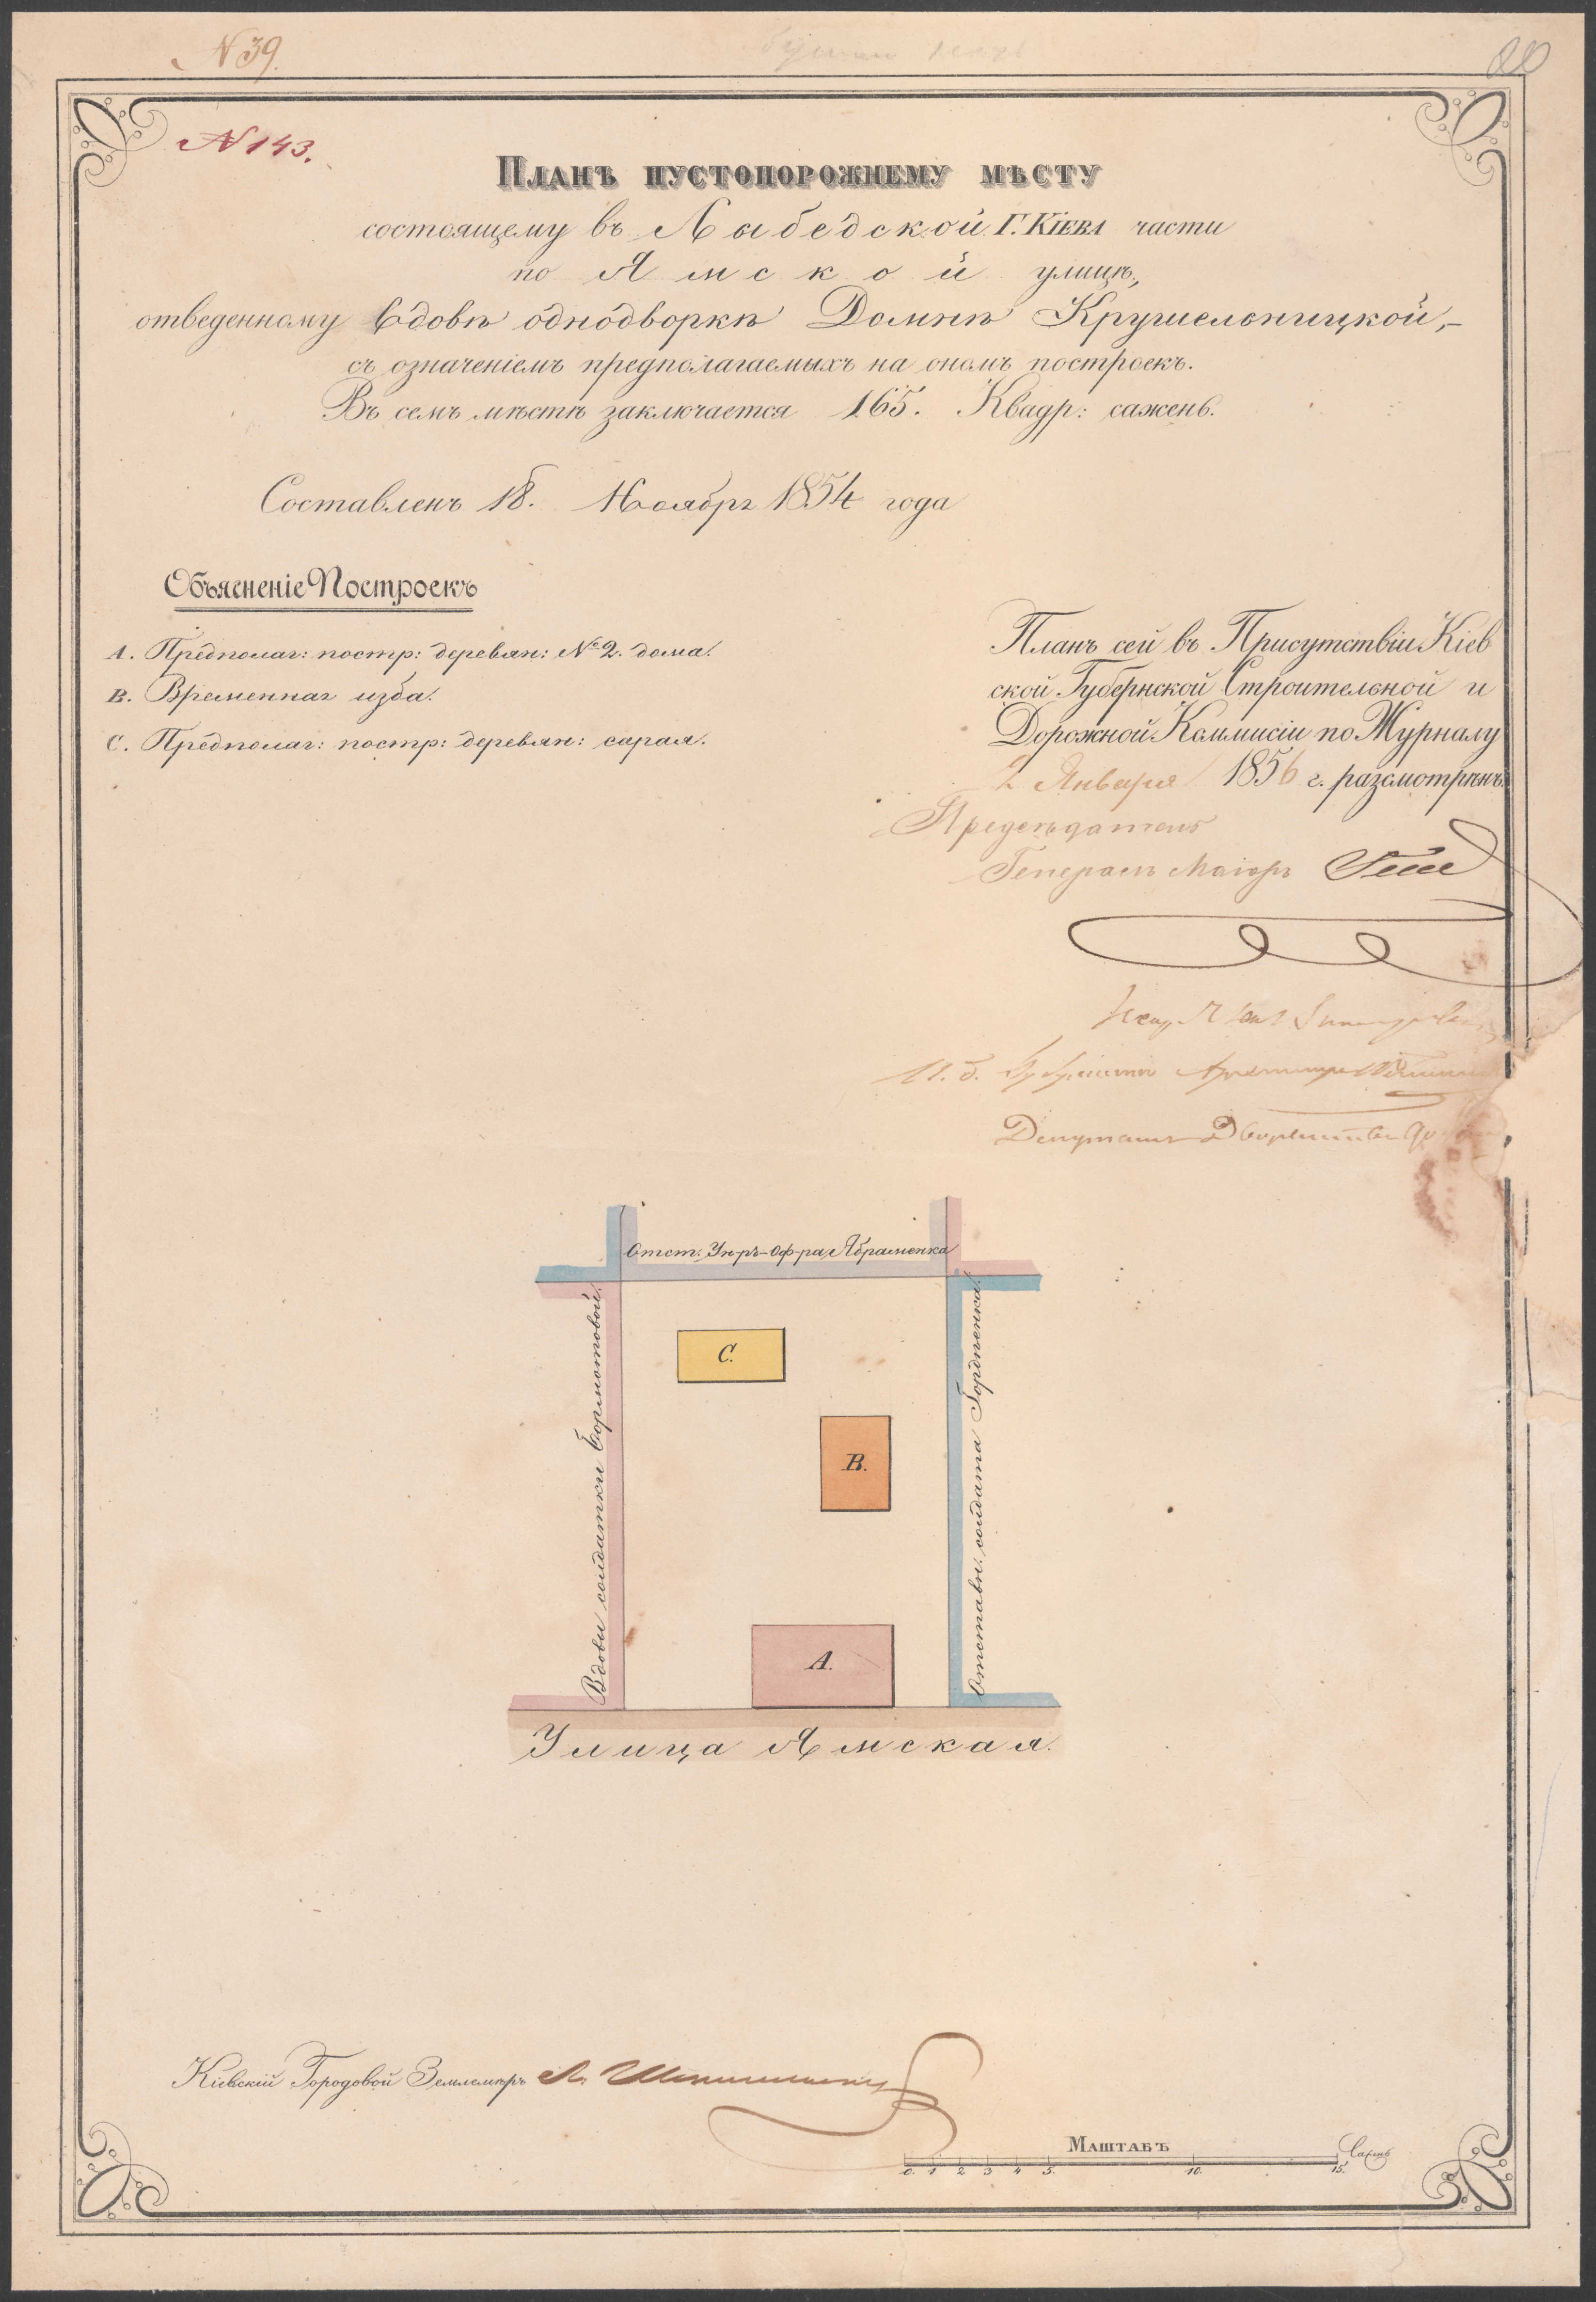 N 39.
N 143.
Планъ пустопорожнему мѣсту
состоящему въ Лыбедской Г. Кіева части
по Ямской улицѣ,
отведенному Вдовѣ однодворкѣ Домнѣ Крушельницкой,
съ означеніемъ предполагаемыхъ на ономъ построекъ.
Въ семъ мѣстѣ заключается 165. Квадр: сажень.
Составленъ 18. Ноября 1854 года
Объясненіе Построекъ
А. Предполаг: постр: деревян: № 2. дома.
В. Временная изба.
С. Предполаг: постр: деревян: сарая.
Планъ сей въ Присутствіи Кіев
ской Губернской Строительной и
Дорожной Коммисіи по Журналу
2 Января 1856 г. разсмотрѣнъ.
Предсѣдатель
Генералъ Маіоръ
Депутатъ Дворянства
Отст. Ун-ръ-Оф-ра Абраменка
Вдовы солдатки Бормотовой.
Отставн. солдата Гордѣенка.
С.
В.
А.
Улица Ямская.
Кіевскій Городовой Землемѣръ
Маштабъ
0. 1 2 3 4 5. 10. 15. Саженъ